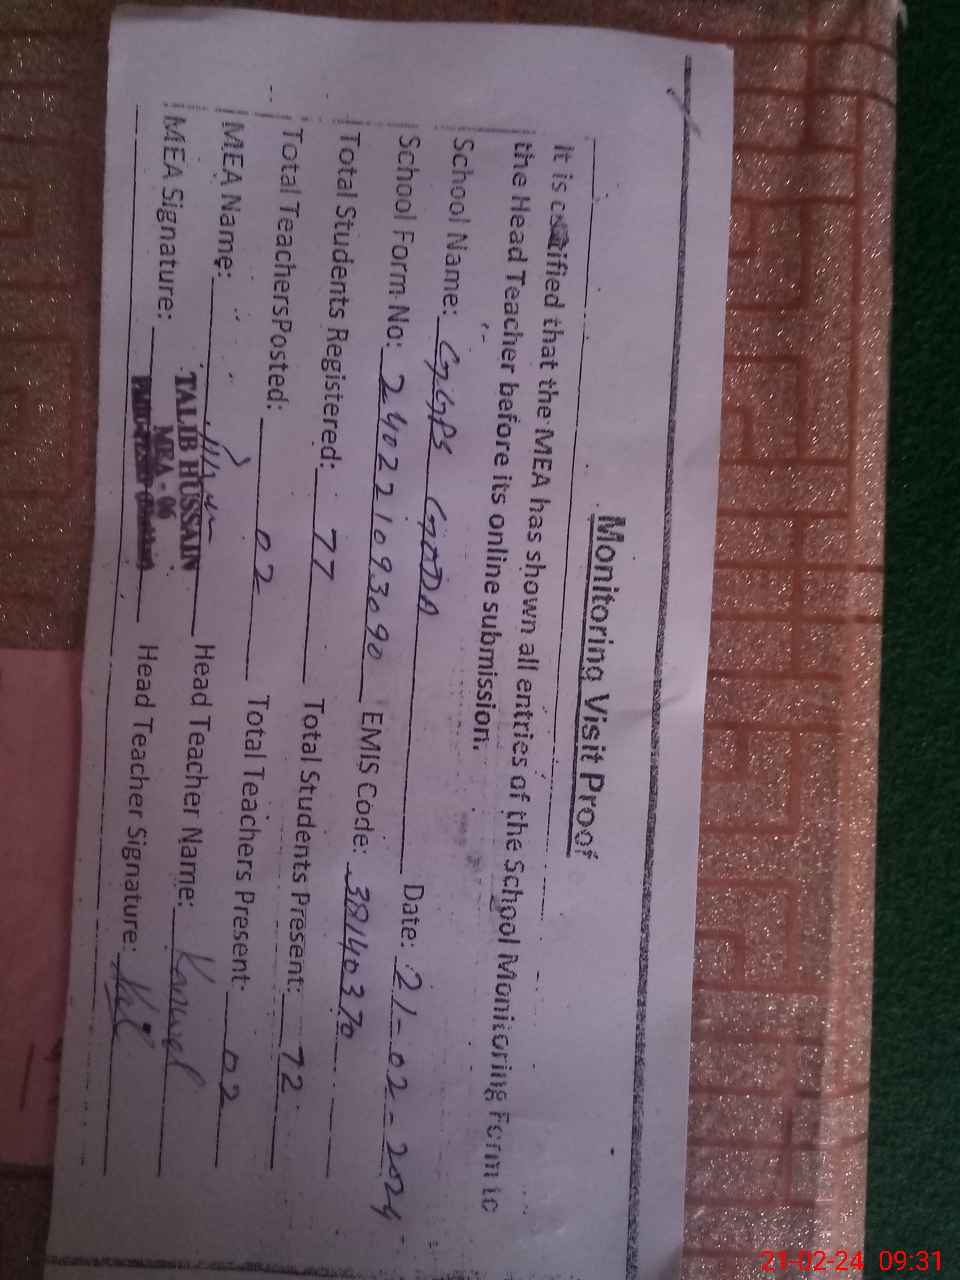 Monitoring Visit Proof
It is certified that the MEA has shown all entries of the School Monitoring Form to
the Head Teacher before its online submission.
School Name: GGPS GODA Date: 21-02-2024
School Form No: 240221093090 EMIS Code: 38140370
Total Students Registered: 77 Total Students Present: 72
Total Teachers Posted: 02 Total Teachers Present: 02
MEA Name: TALIB HUSSAIN Head Teacher Name: Kanwel
MEA Signature: MEA - 06 Head Teacher Signature:
21-02-24 09:31